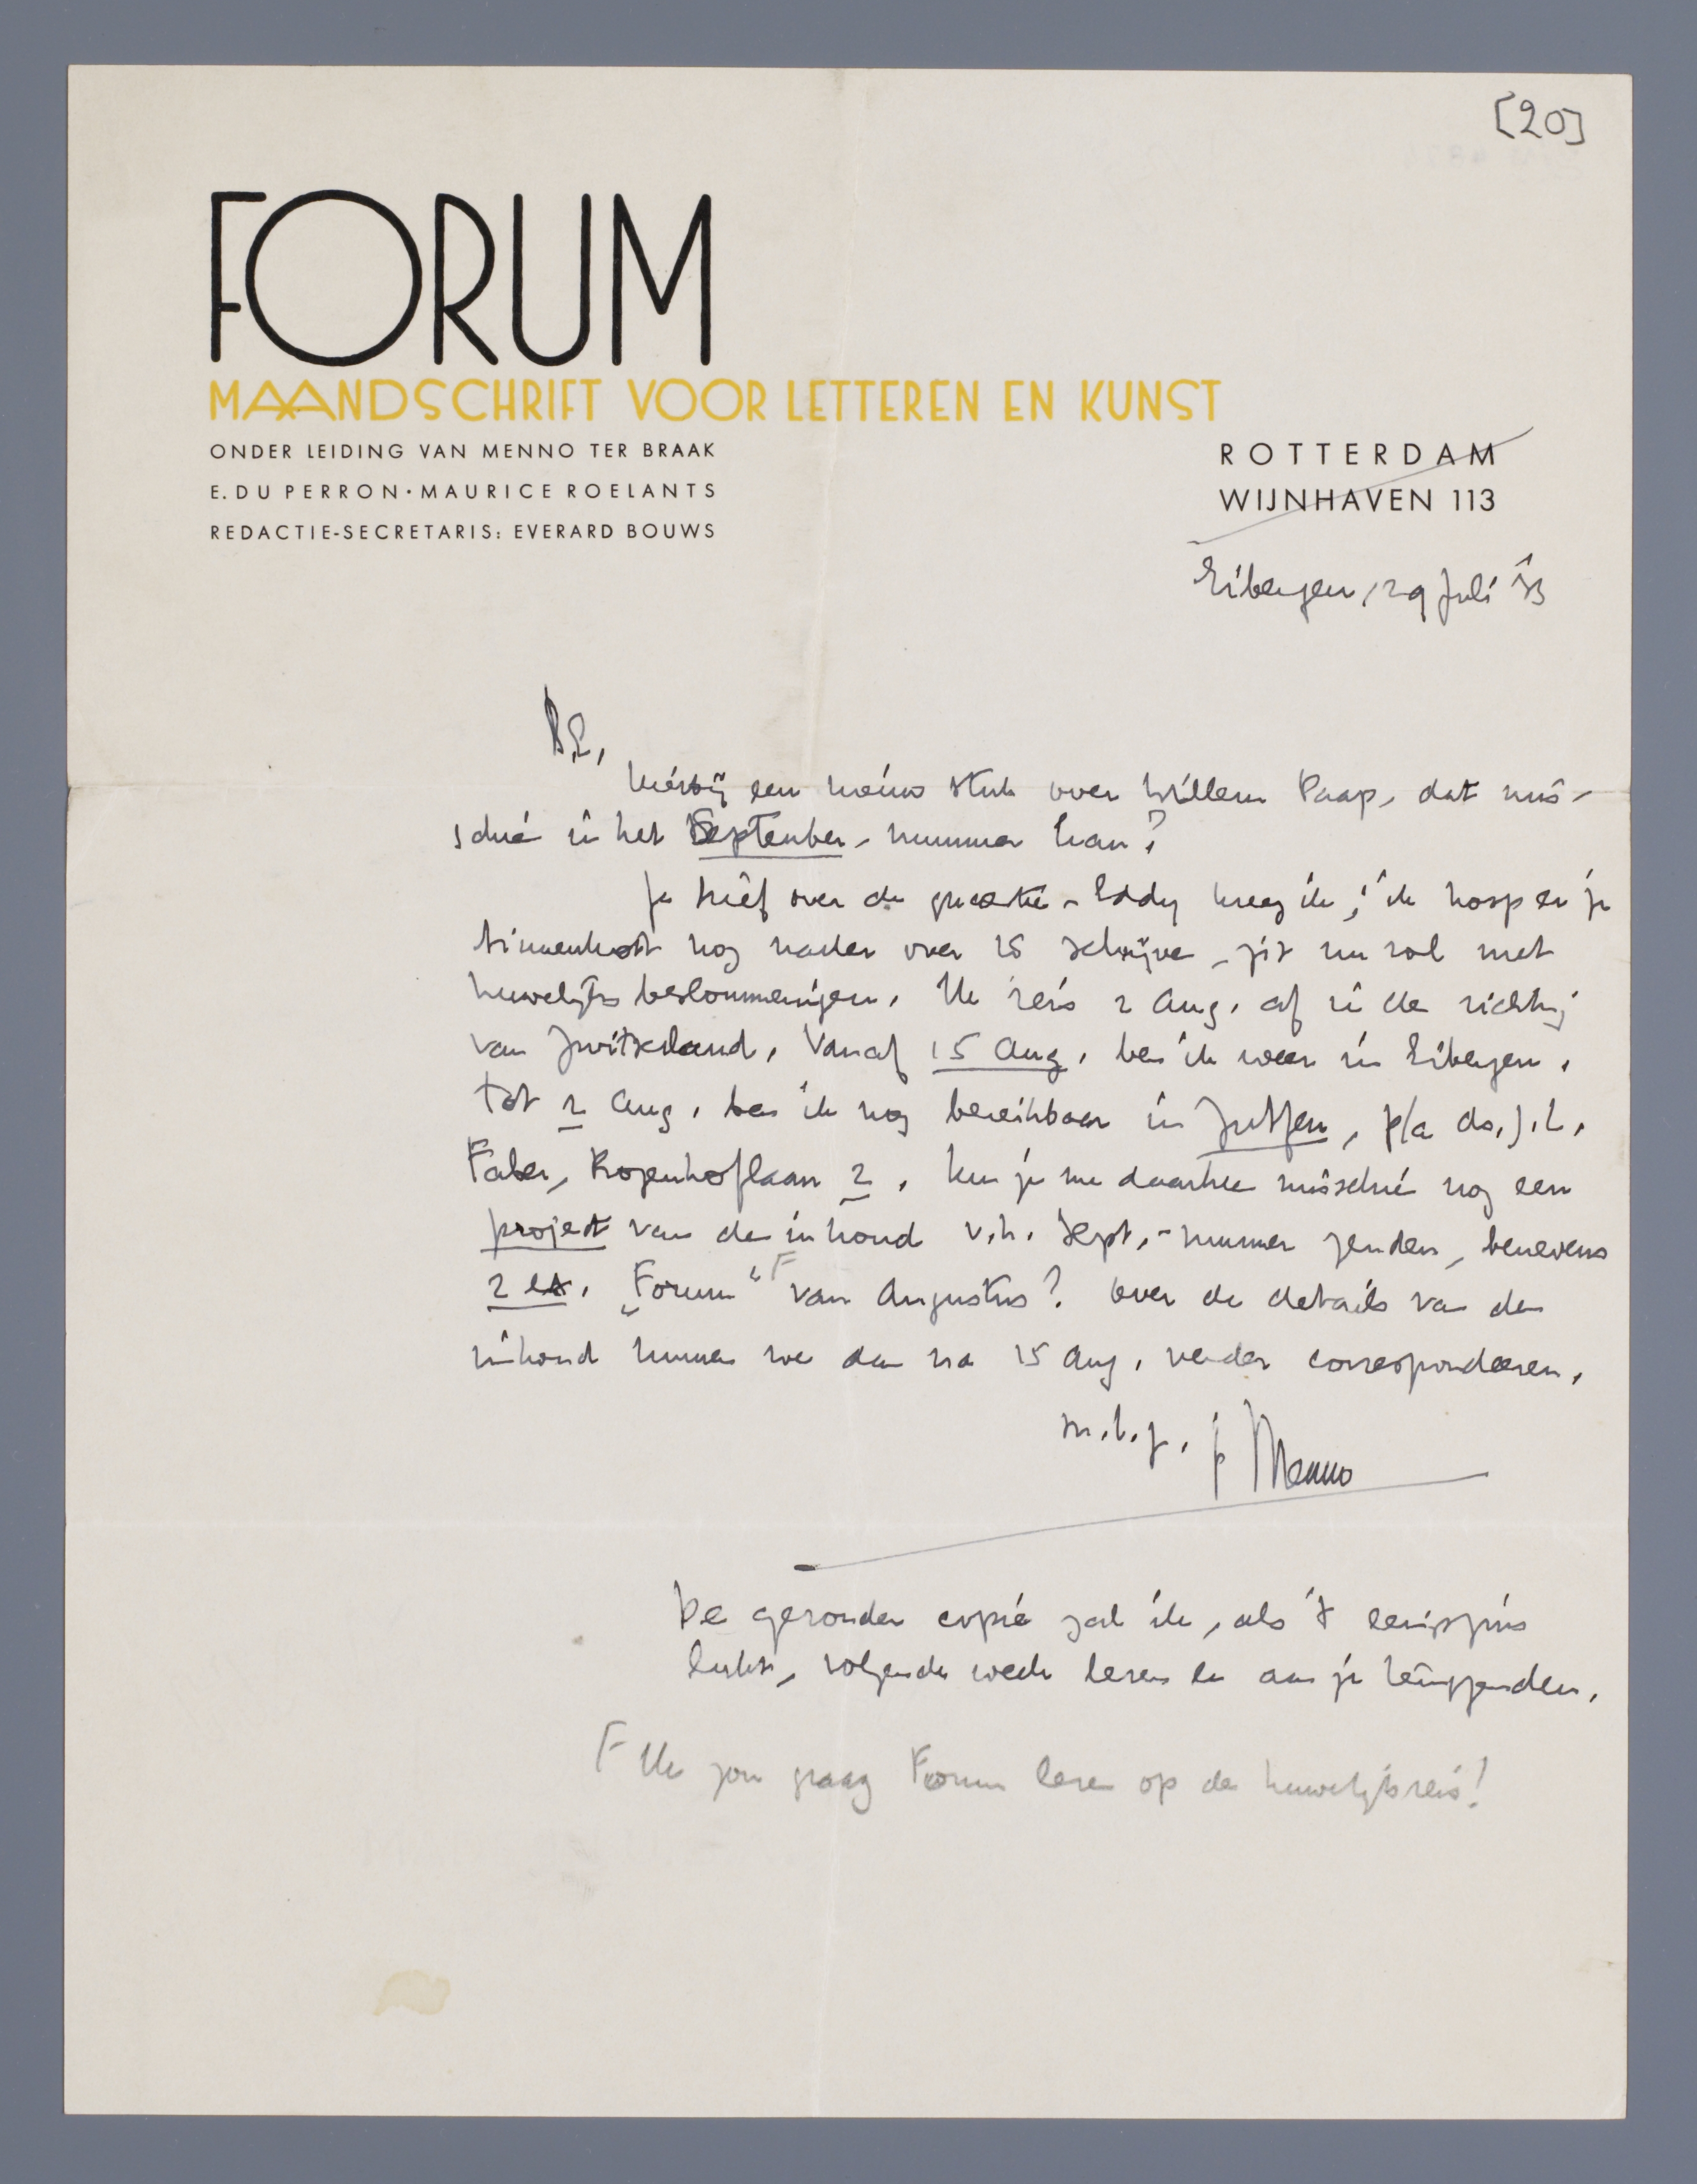 [20]
FORUM
MAANDSCHRIFT VOOR LETTEREN EN KUNST
ONDER LEIDING VAN MENNO TER BRAAK
E. DU PERRON · MAURICE ROELANTS
REDACTIE-SECRETARIS: EVERARD BOUWS
ROTTERDAM
WIJNHAVEN 113
Eibergen, 29 Juli '33
B.E.,
Hierbij een nieuw stuk over Willem Paap, dat mis-
schien in het September-nummer kan?
Je brief over de quaestie-Eddy kreeg ik; ik hoop er je
binnenkort nog nader over te schrijven, zit nu vol met
huwelijksbeslommeringen. Ik reis 2 Aug. af in de richting
van Zwitserland. Vanaf 15 Aug. ben ik weer in Eibergen.
Tot 2 Aug. ben ik nog bereikbaar in Zutfen, p/a ds. J.L.
Faber, Rozenhoflaan 2. Kun je me daarheen misschien nog een
project van de inhoud v.h. Sept.-nummer zenden, benevens
2 ex. „Forum" F van Augustus? Over de details van den
inhoud kunnen we dan na 15 Aug. verder correspondeeren.
m.h.g. je Menno
De gezonden copie zal ik, als 't eenigszins
lukt, volgende week lezen en aan je terugzenden.
F Ik zou graag Forum lezen op de huwelijksreis!